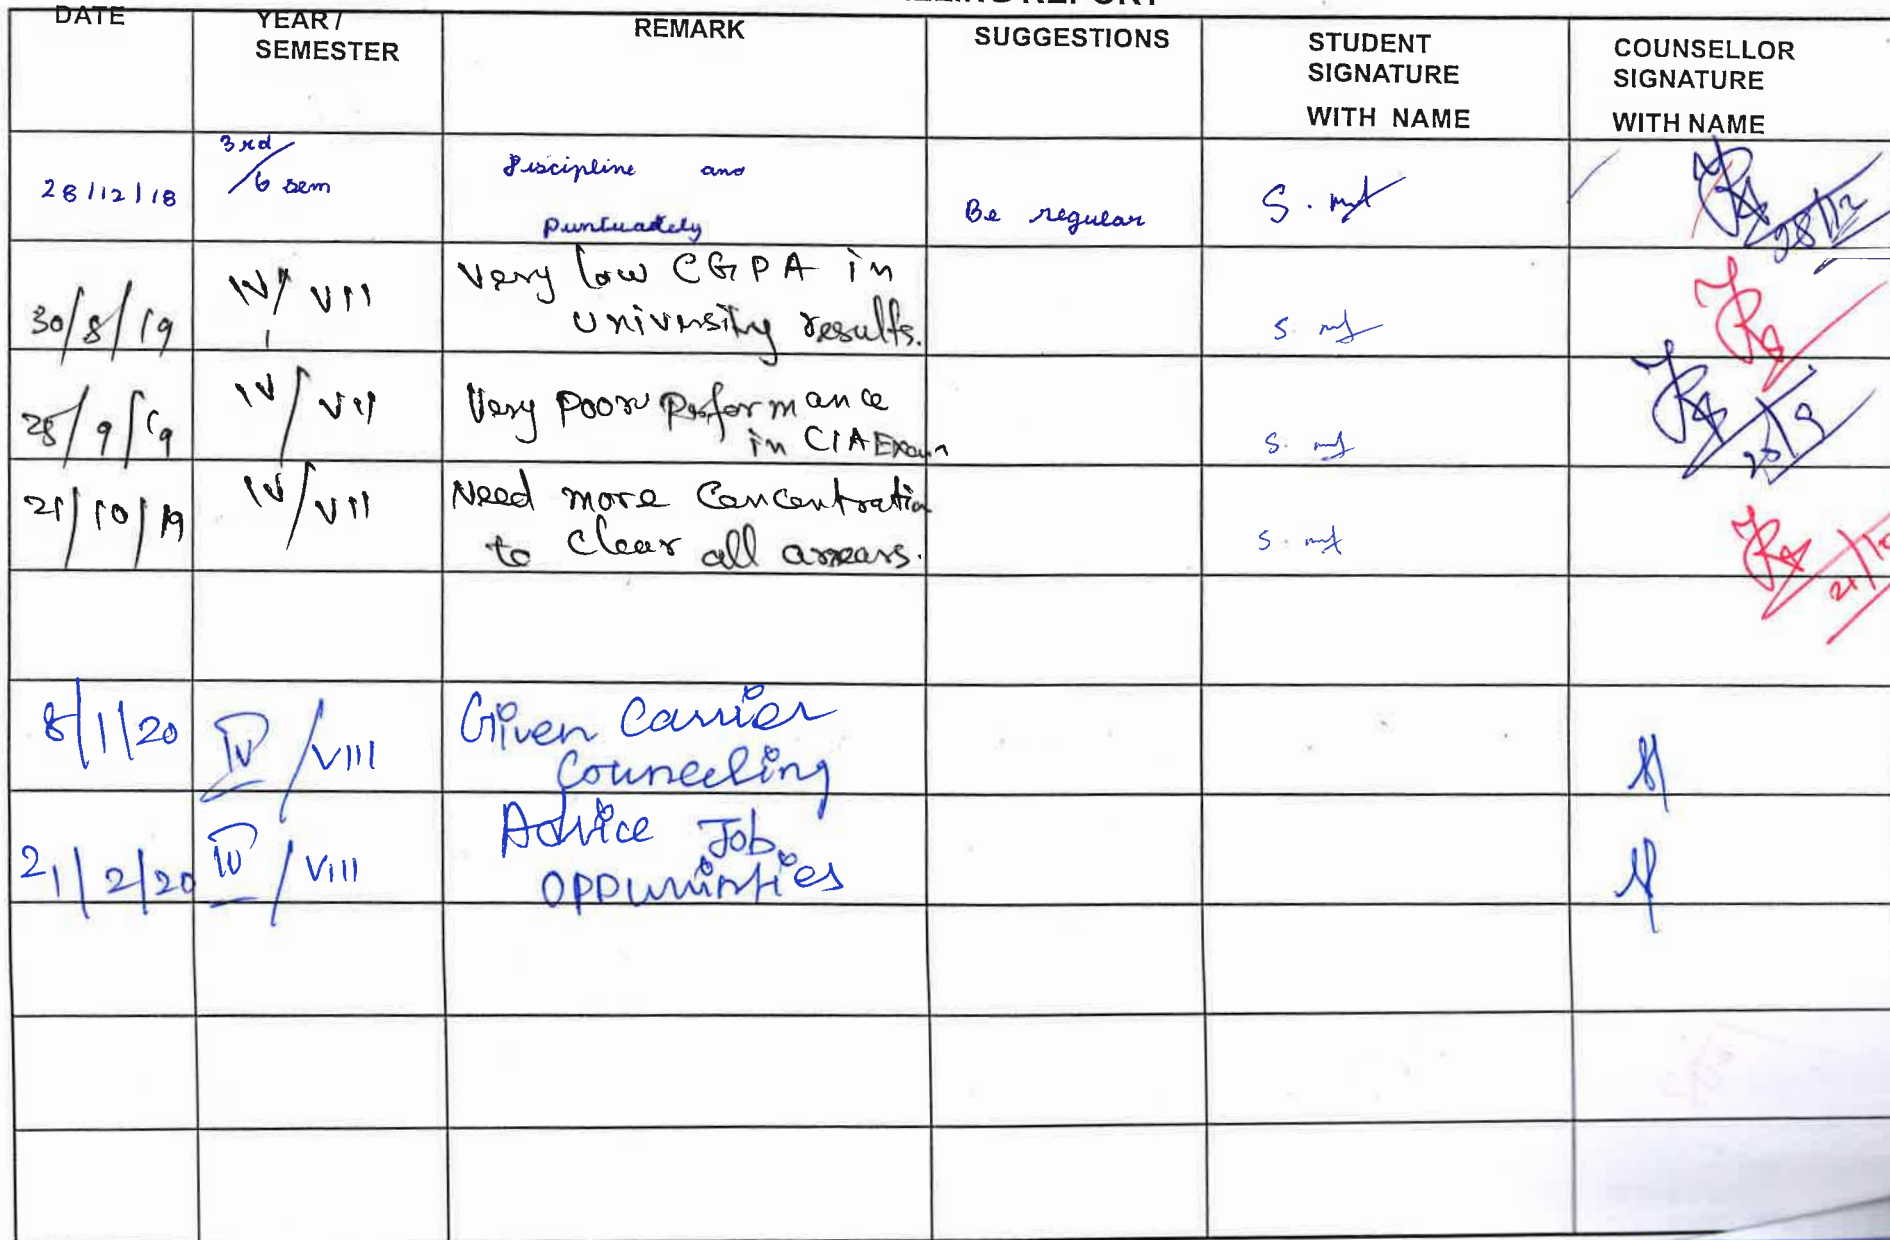 REPORT
DATE
YEAR / SEMESTER
REMARK
SUGGESTIONS
STUDENT SIGNATURE WITH NAME
COUNSELLOR SIGNATURE WITH NAME
28/12/18
3rd / 6 sem
Discipline and
Puntuately
Be regular
28/12
30/8/19
IV / VII
Very low CGPA in
University results.
IV / VII
Very poor Performance
in CIA Exam
21/10/19
IV / VII
Need more Concentration
to Clear all arrears.
8/1/20
IV / VIII
Given Carrier
Counceling
21/2/20
IV / VIII
Advice Job